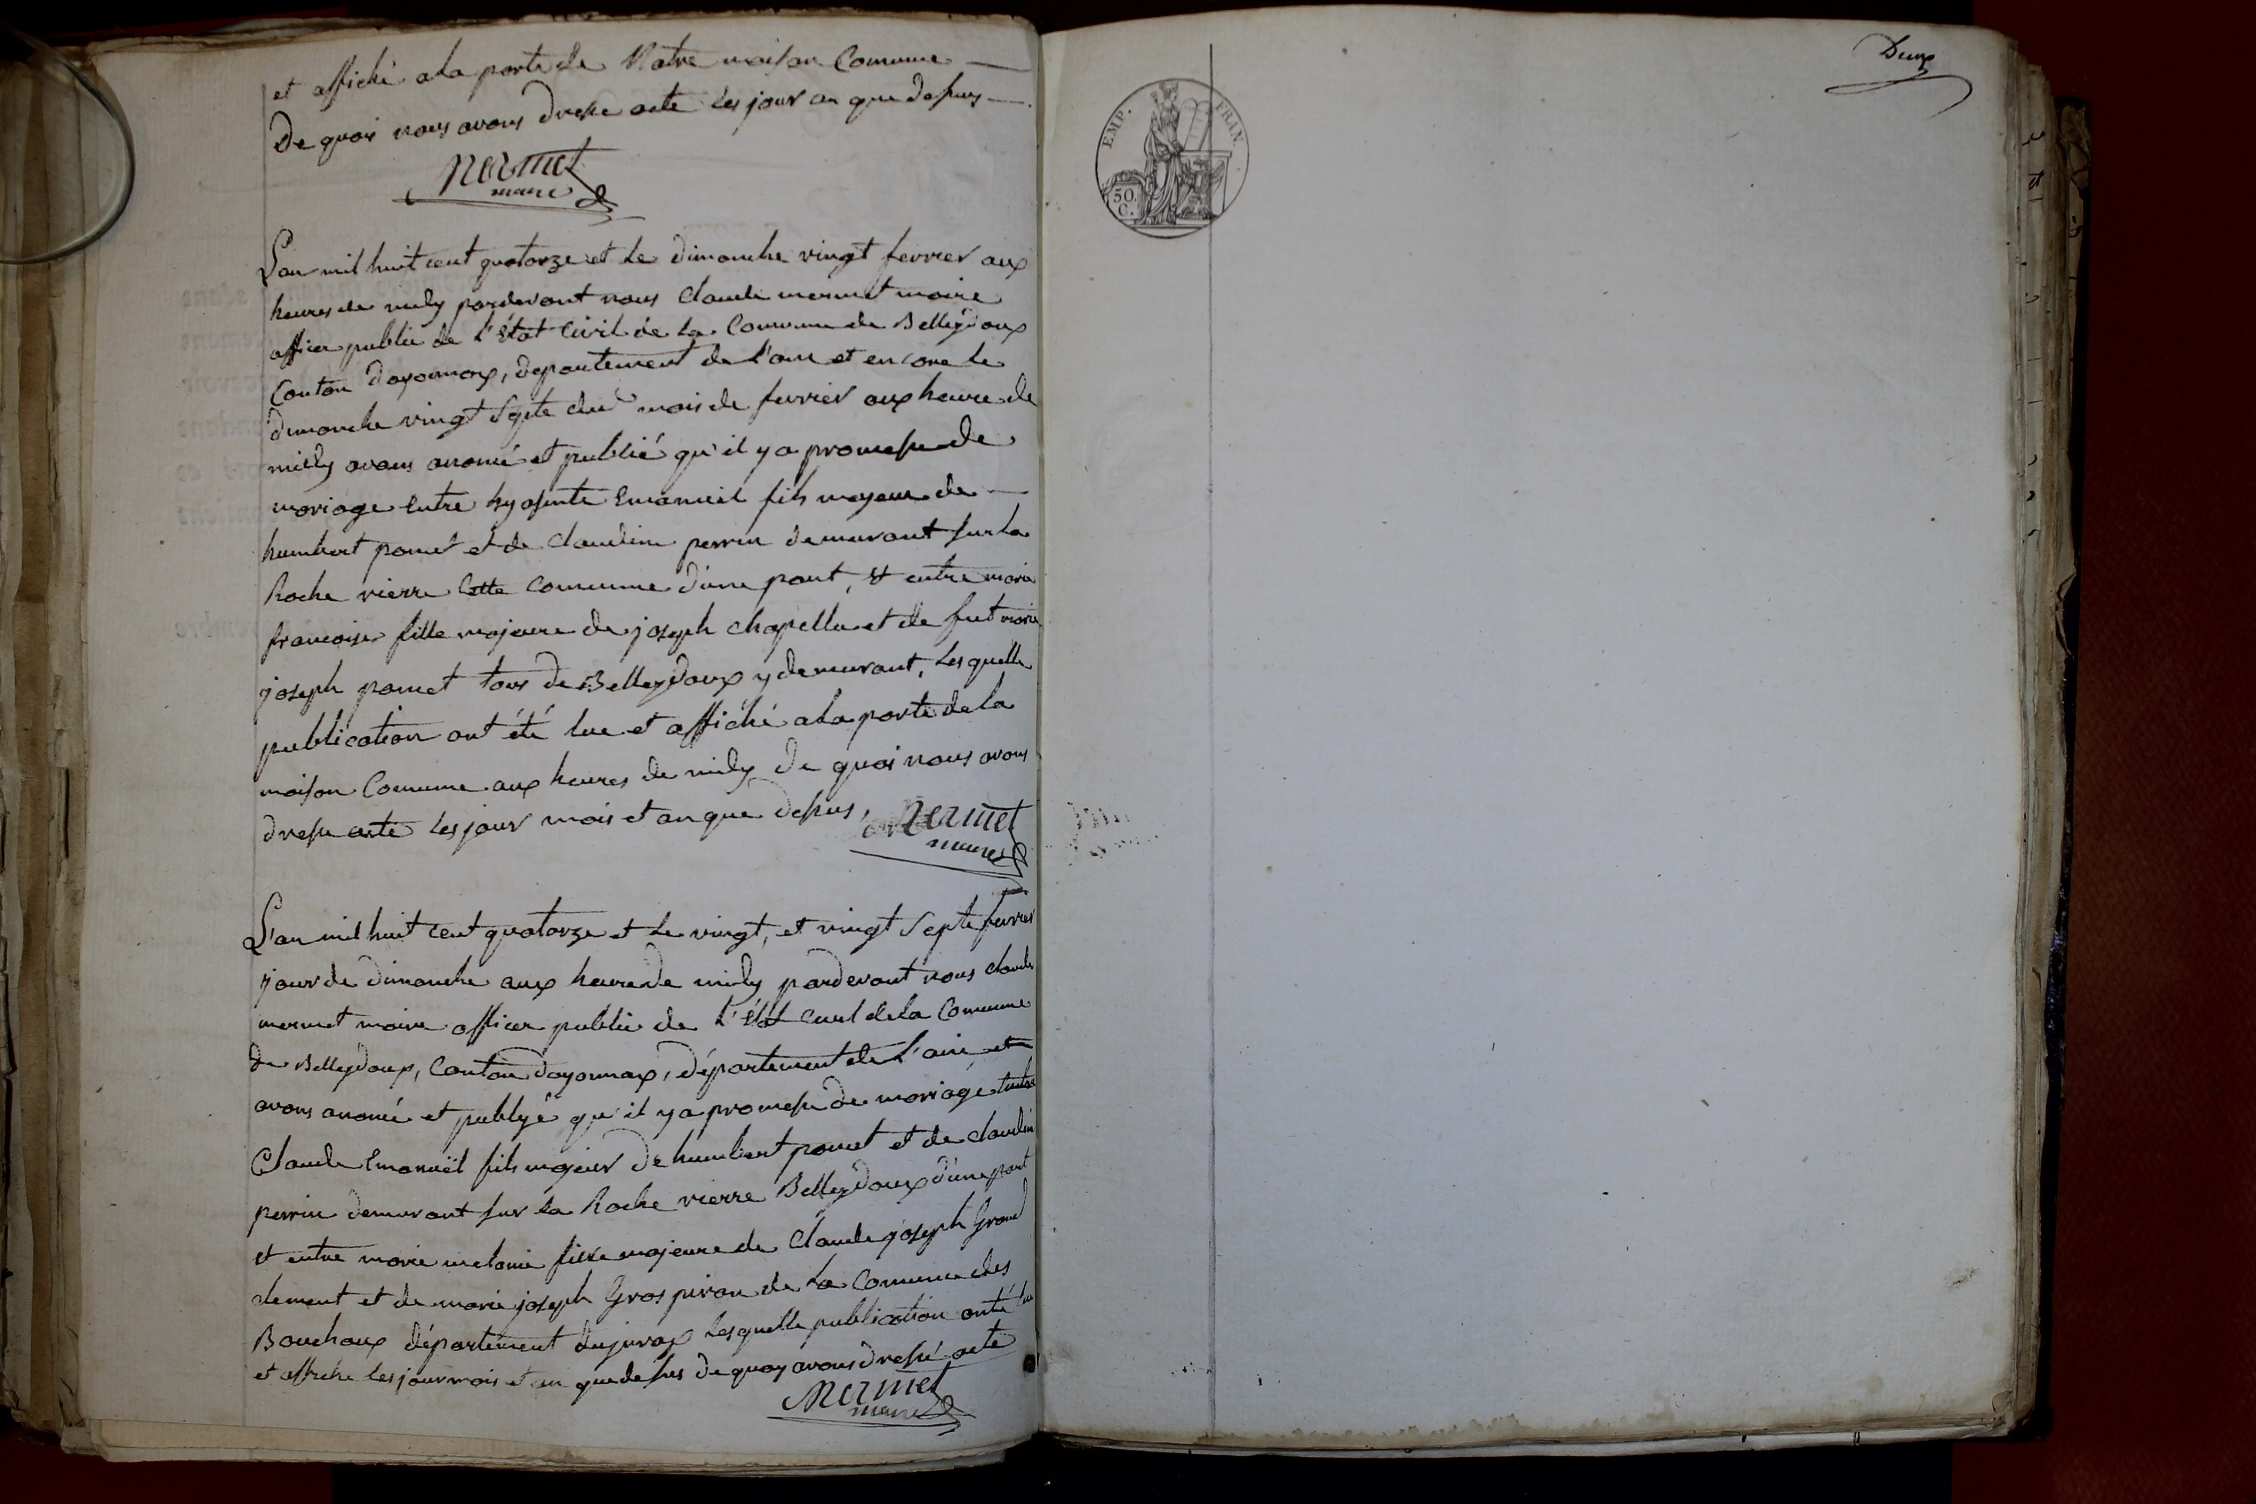 et affiché a la porte de Notre maison Comune
De quoi nous avons dressé acte les jour an que dessus
Mermet
maire
L'an mil huit cent quatorze et le dimanche vingt fevrier aux
heures de midy pardevant nous Claude mermet maire
officer public de l'état Civil de la Comune de Belleydoux
Canton doyonnax, departement de l'ain et encore le
dimanche vingt septe dud mois de fevrier aux heure de
midy avons anoncé et publié qu'il y a promesse de
mariage entre hyasinte Emanuel fils majeur de
humbert poncet et de Claudine perrin demurant sur la
Roche vierre Cette Comunne d'une part, et entre marie
francoise fille majeure de joseph chapellu et de fut marie
joseph poncet tous de Belleydoux y demeurant, Lesquelle
publication ont été lue et affiché a la porte de la
maison Comune aux heures de midy De quoi nous avons
dresse acte les jour mois et an que dessus,
Mermet
maire
L'an mil huit cent quatorze et le vingt, et vingt septe fevrier
jour de dimanche aux heure de midy pardevant nous claude
mermet maire officer public de l'état Civil de la Comune
de Belleydoux, Canton doyonnax, département de l'ain et
avons anoncé et publyé qu'il y a promesse de mariage entre
Claude Emanuël fils majeur de humbert poncet et de claudine
perrin demurant sur la Roche vierre Belleydoux d'une part
et entre marie melanie fille majeure de Claude joseph Grand
clement et de marie joseph Gros piron de la Comune des
Bouchoux département du jurax Lesquelle publication onté lue
et affiche les jour mois et an que dessus de quoy avons dressé acte
Mermet
maire
Deux
EMP. FRAN.
50.
C.